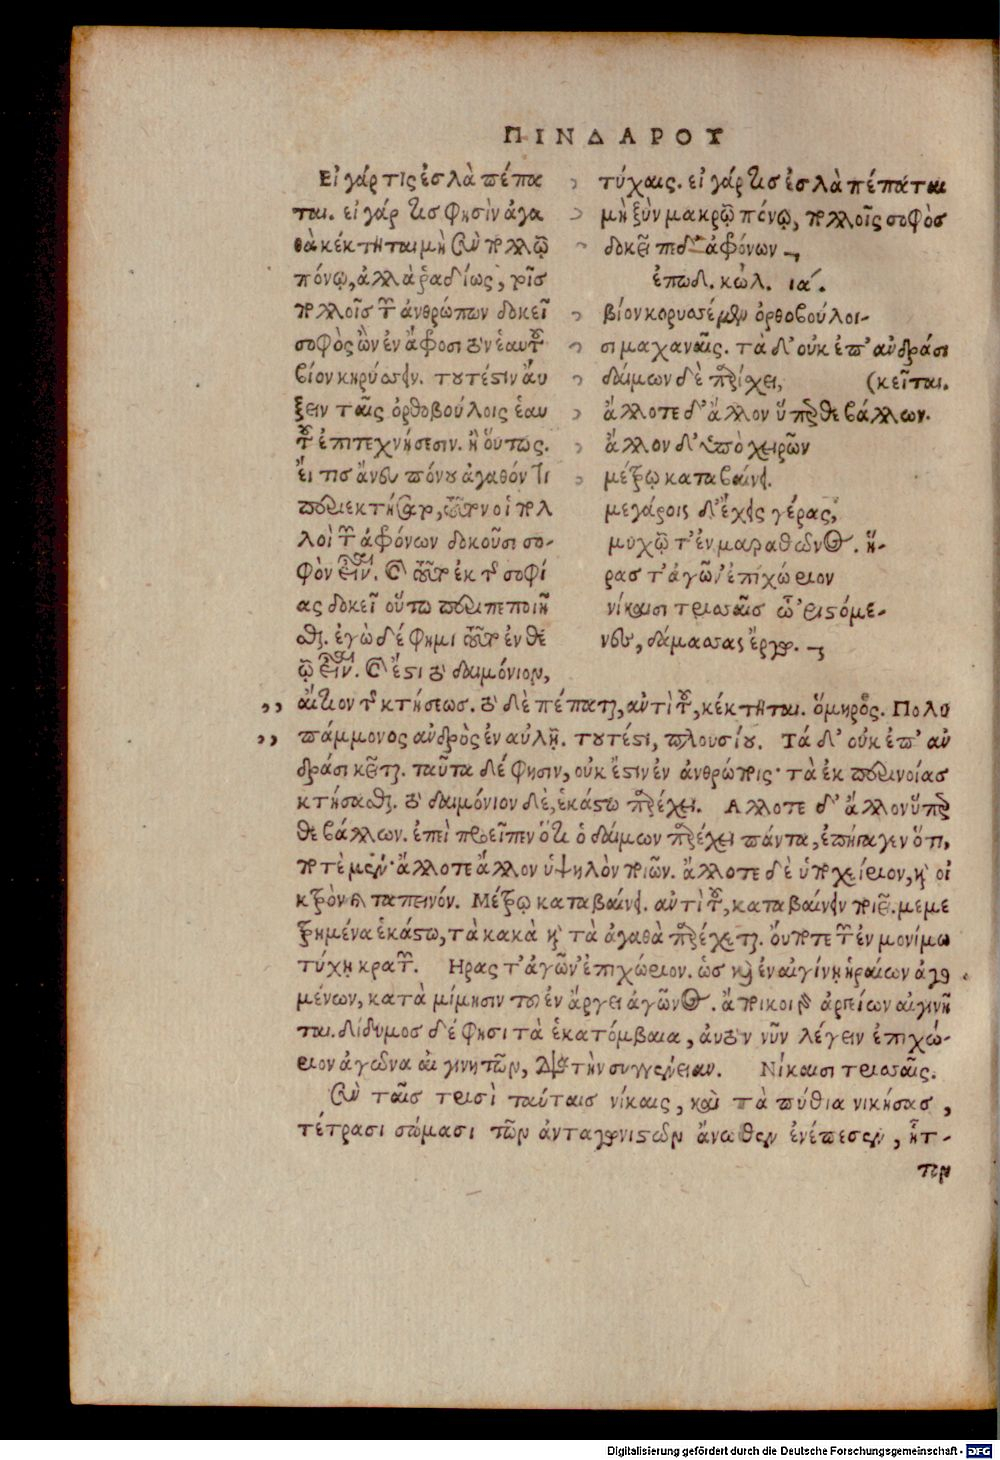 ΠΙΝΔΑΡΟΥ
Εἰ γάρ τις ἐσλὰ πέπα
ται. εἰ γάρ τις φησὶν ἀγα
θὰ κέκτηται μὴ σὺν πολλῷ
πόνῳ, ἀλλὰ ῥαδίως, τοῖς
πολλοῖς τῶν ἀνθρώπων δοκεῖ
σοφὸς ὢν ἐν ἄφροσι τὸν ἑαυτοῦ
βίον κηρύσσειν. τουτέστιν αὔ
ξειν ταῖς ὀρθοβούλοις ἑαυ
τοῦ ἐπιτεχνήσεσιν. ἢ οὕτως.
εἴ τις ἄνευ πόνου ἀγαθόν τι
περιεκτήσατο, τοῦτον οἱ πολ
λοὶ τῶν ἀφρόνων δοκοῦσι σο-
φὸν εἶναι. καὶ τοῦτο ἐκ τῆς σοφί
ας δοκεῖ οὕτω περιπεποιῆ
σθαι. ἐγὼ δέ φημι τοῦτο ἐν θε
ῷ εἶναι. καὶ ἔστι τὸ δαιμόνιον,
τύχαις. εἰ γάρ τις ἐσλὰ πέπαται
μὴ ξὺν μακρῷ πόνῳ, πολλοῖς σοφὸς
δοκεῖ πεδ' ἀφρόνων
ἐπωδ. κώλ. ια΄.
βίον κορυσσέμεν ὀρθοβούλοι-
σι μαχαναῖς. τὰ δ' οὐκ ἐπ' ἀνδράσι
δαίμων δὲ παρίχει, (κεῖται.
ἄλλοτε δ' ἄλλον ὕπερθε βάλλων.
ἄλλον δ' ὑπὸ χειρῶν
μέτρῳ καταβαίνει.
μεγάροις δ' ἔχεις γέρας,
μυχῷ τ' ἐν μαραθῶνος. ἥ-
ρας τ' ἀγῶν' ἐπιχώριον
νίκαισι τρισσαῖς ὦ 'ριστόμε-
νες, δάμασσας ἔργῳ.
αἴτιον τῆς κτήσεως. τὸ δὲ πέπαται, ἀντὶ τοῦ, κέκτηται. ὅμηρος. Πολυ
πάμμονος ἀνδρὸς ἐν αὐλῇ. τουτέστι, πλουσίου. Τά δ' οὐκ ἐπ' ἀν
δράσι κεῖται. ταῦτα δέ φησιν, οὐκ ἔστιν ἐν ἀνθρώποις· τὰ ἐκ περινοίας
κτήσασθαι. τὸ δαιμόνιον δὲ, ἑκάστῳ παρέχει. Αλλοτε δ' ἄλλον ὕπερ
θε βάλλων. ἐπεὶ προεῖπεν ὅτι ὁ δαίμων παρέχει πάντα, ἐπήγαγεν ὅτι,
ποτὲ μὲν· ἄλλοτε ἄλλον ὑψηλὸν ποιῶν. ἄλλοτε δὲ ὑποχείριον, καὶ οἰ
κτρὸν καὶ ταπεινόν. Μέτρῳ καταβαίνει. ἀντὶ τοῦ, καταβαίνειν ποιεῖ. μεμε
τρημένα ἑκάστῳ, τὰ κακὰ καὶ τὰ ἀγαθὰ παρέχεται. οὔποτε τῶν ἐν μονίμῳ
τύχῃ κρατῶν. Ηρας τ' ἀγῶν' ἐπιχώριον. ὡς καὶ ἐν αἰγίνῃ ἡραίων ἀγο
μένων, κατὰ μίμησιν τοῦ ἐν ἄργει ἀγῶνος. ἄποικοι γὰρ ἀργείων αἰγινῆ
ται. δίδυμος δέ φησι τὰ ἑκατόμβαια, αὐτὸν νῦν λέγειν ἐπιχώ-
ριον ἀγῶνα αἰγινητῶν, διὰ τὴν συγγένειαν. Νίκαισι τρισσαῖς.
Σὺν ταῖς τρισὶ ταύταις νίκαις, καὶ τὰ πύθια νικήσας,
τέτρασι σώμασι τῶν ἀνταγωνιστῶν ἄνωθεν ἐνέπεσεν, ἧτ-
τον
Digitalisierung gefördert durch die Deutsche Forschungsgemeinschaft - DFG